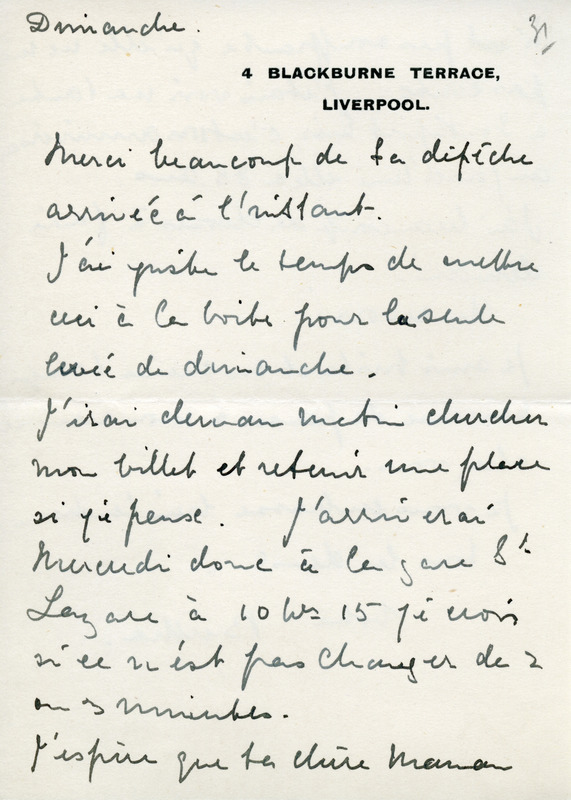 Dimanche.
31
4 BLACKBURNE TERRACE,
LIVERPOOL.
Merci beaucoup de ta dépêche
arrivée à l'instant.
J'ai juste le temps de mettre
ceci à la boite pour la seule
levée de dimanche.
J'irai demain matin chercher
mon billet et retenir une place
si j'y pense. J'arriverai
Mercredi donc à la gare St
Lazare à 10 hrs 15 je crois
si ce n'est pas changer de 2
ou 3 minutes.
J'espère que ta chère Maman